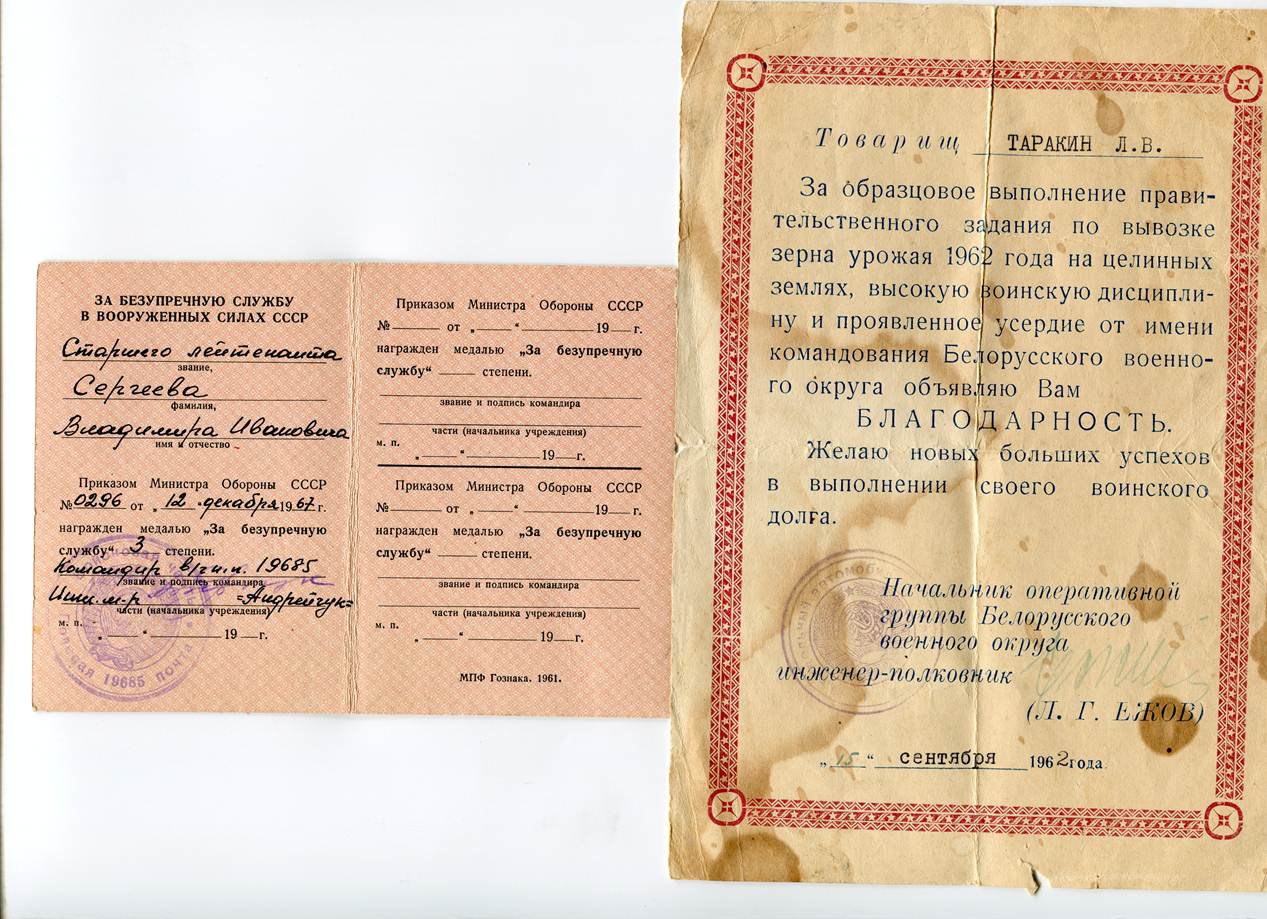 ЗА БЕЗУПРЕЧНУЮ СЛУЖБУ
В ВООРУЖЕННЫХ СИЛАХ СССР
Старшего лейтенанта
звание,
Сергеева
фамилия,
Владимира Ивановича
имя и отчество
Приказом Министра Обороны СССР
№ 0296 от „ 12 “ декабря 1967 г.
награжден медалью „За безупречную
службу“ 3 степени.
Командир в/ч п.п. 19685
звание и подпись командира
Инж. м-р =Андрейчук=
части (начальника учреждения)
м. п.
„___“ ______ 19__г.
19685 ПОЧТА
Приказом Министра Обороны СССР
№ ____ от „___“ ______ 19__г.
награжден медалью „За безупречную
службу“ ____ степени.
звание и подпись командира
части (начальника учреждения)
м. п.
„___“ ______ 19__г.
Приказом Министра Обороны СССР
№ ____ от „___“ ______ 19__г.
награжден медалью „За безупречную
службу“ ____ степени.
звание и подпись командира
части (начальника учреждения)
м. п.
„___“ ______ 19__г.
МПФ Гознака. 1961.
Товарищ ТАРАКИН Л.В.
За образцовое выполнение прави-
тельственного задания по вывозке
зерна урожая 1962 года на целинных
землях, высокую воинскую дисципли-
ну и проявленное усердие от имени
командования Белорусского военно-
го округа объявляю Вам
БЛАГОДАРНОСТЬ.
Желаю новых больших успехов
в выполнении своего воинского
долга.
Начальник оперативной
группы Белорусского
военного округа
инженер-полковник
(Л. Г. ЕЖОВ)
„ 15 “ сентября 1962 года